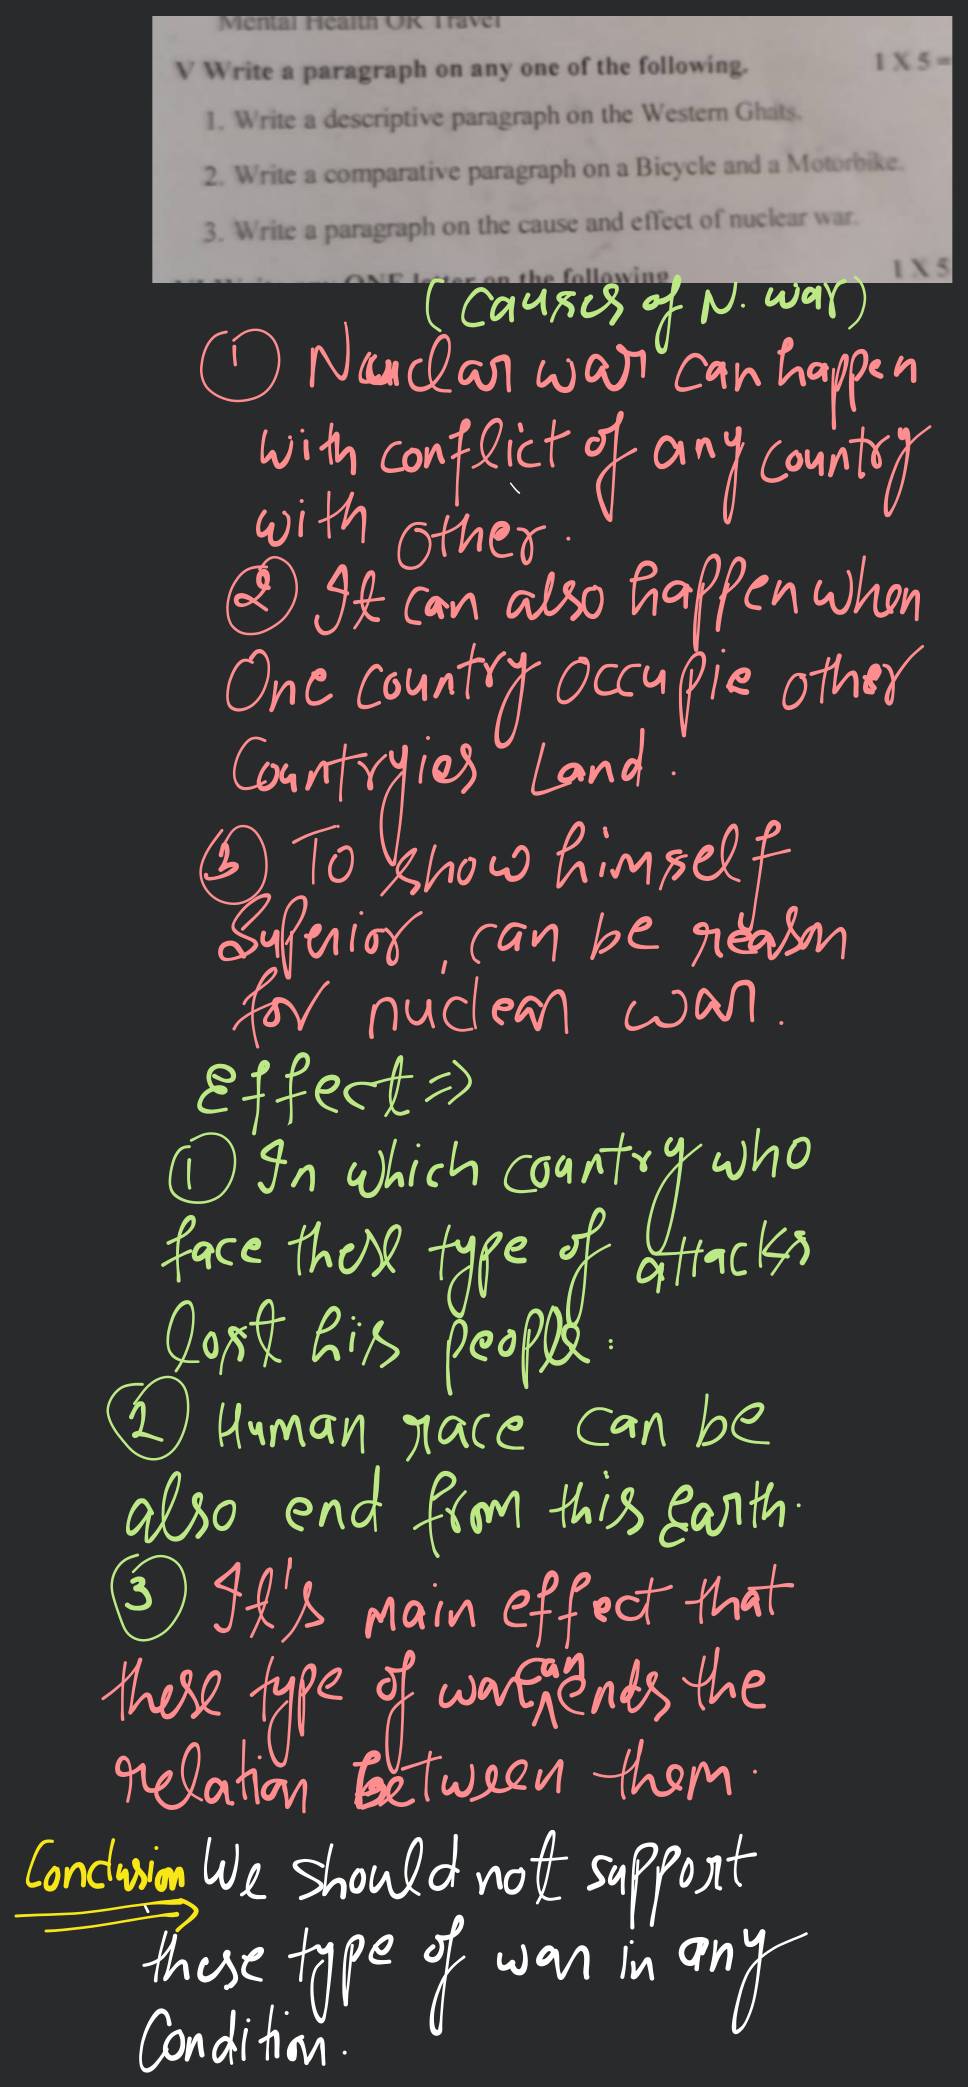 Mental Health OR Travel
V Write a paragraph on any one of the following. 1 X 5 =
1. Write a descriptive paragraph on the Western Ghats.
2. Write a comparative paragraph on a Bicycle and a Motorbike.
3. Write a paragraph on the cause and effect of nuclear war.
ONE letter on the following 1 X 5
(Causes of N. war)
① Nuclar war can happen
with conflict of any country
with other.
② It can also happen when
One country occupie other
Countryies Land.
③ To show himself
Superior, can be reason
for nuclear war.
Effect ⇒
① In which country who
face these type of attacks
lost his people.
② Human race can be
also end from this Earth.
③ It's main effect that
these type of war can ends the
relation between them.
Conclusion We should not support
these type of war in any
Condition.